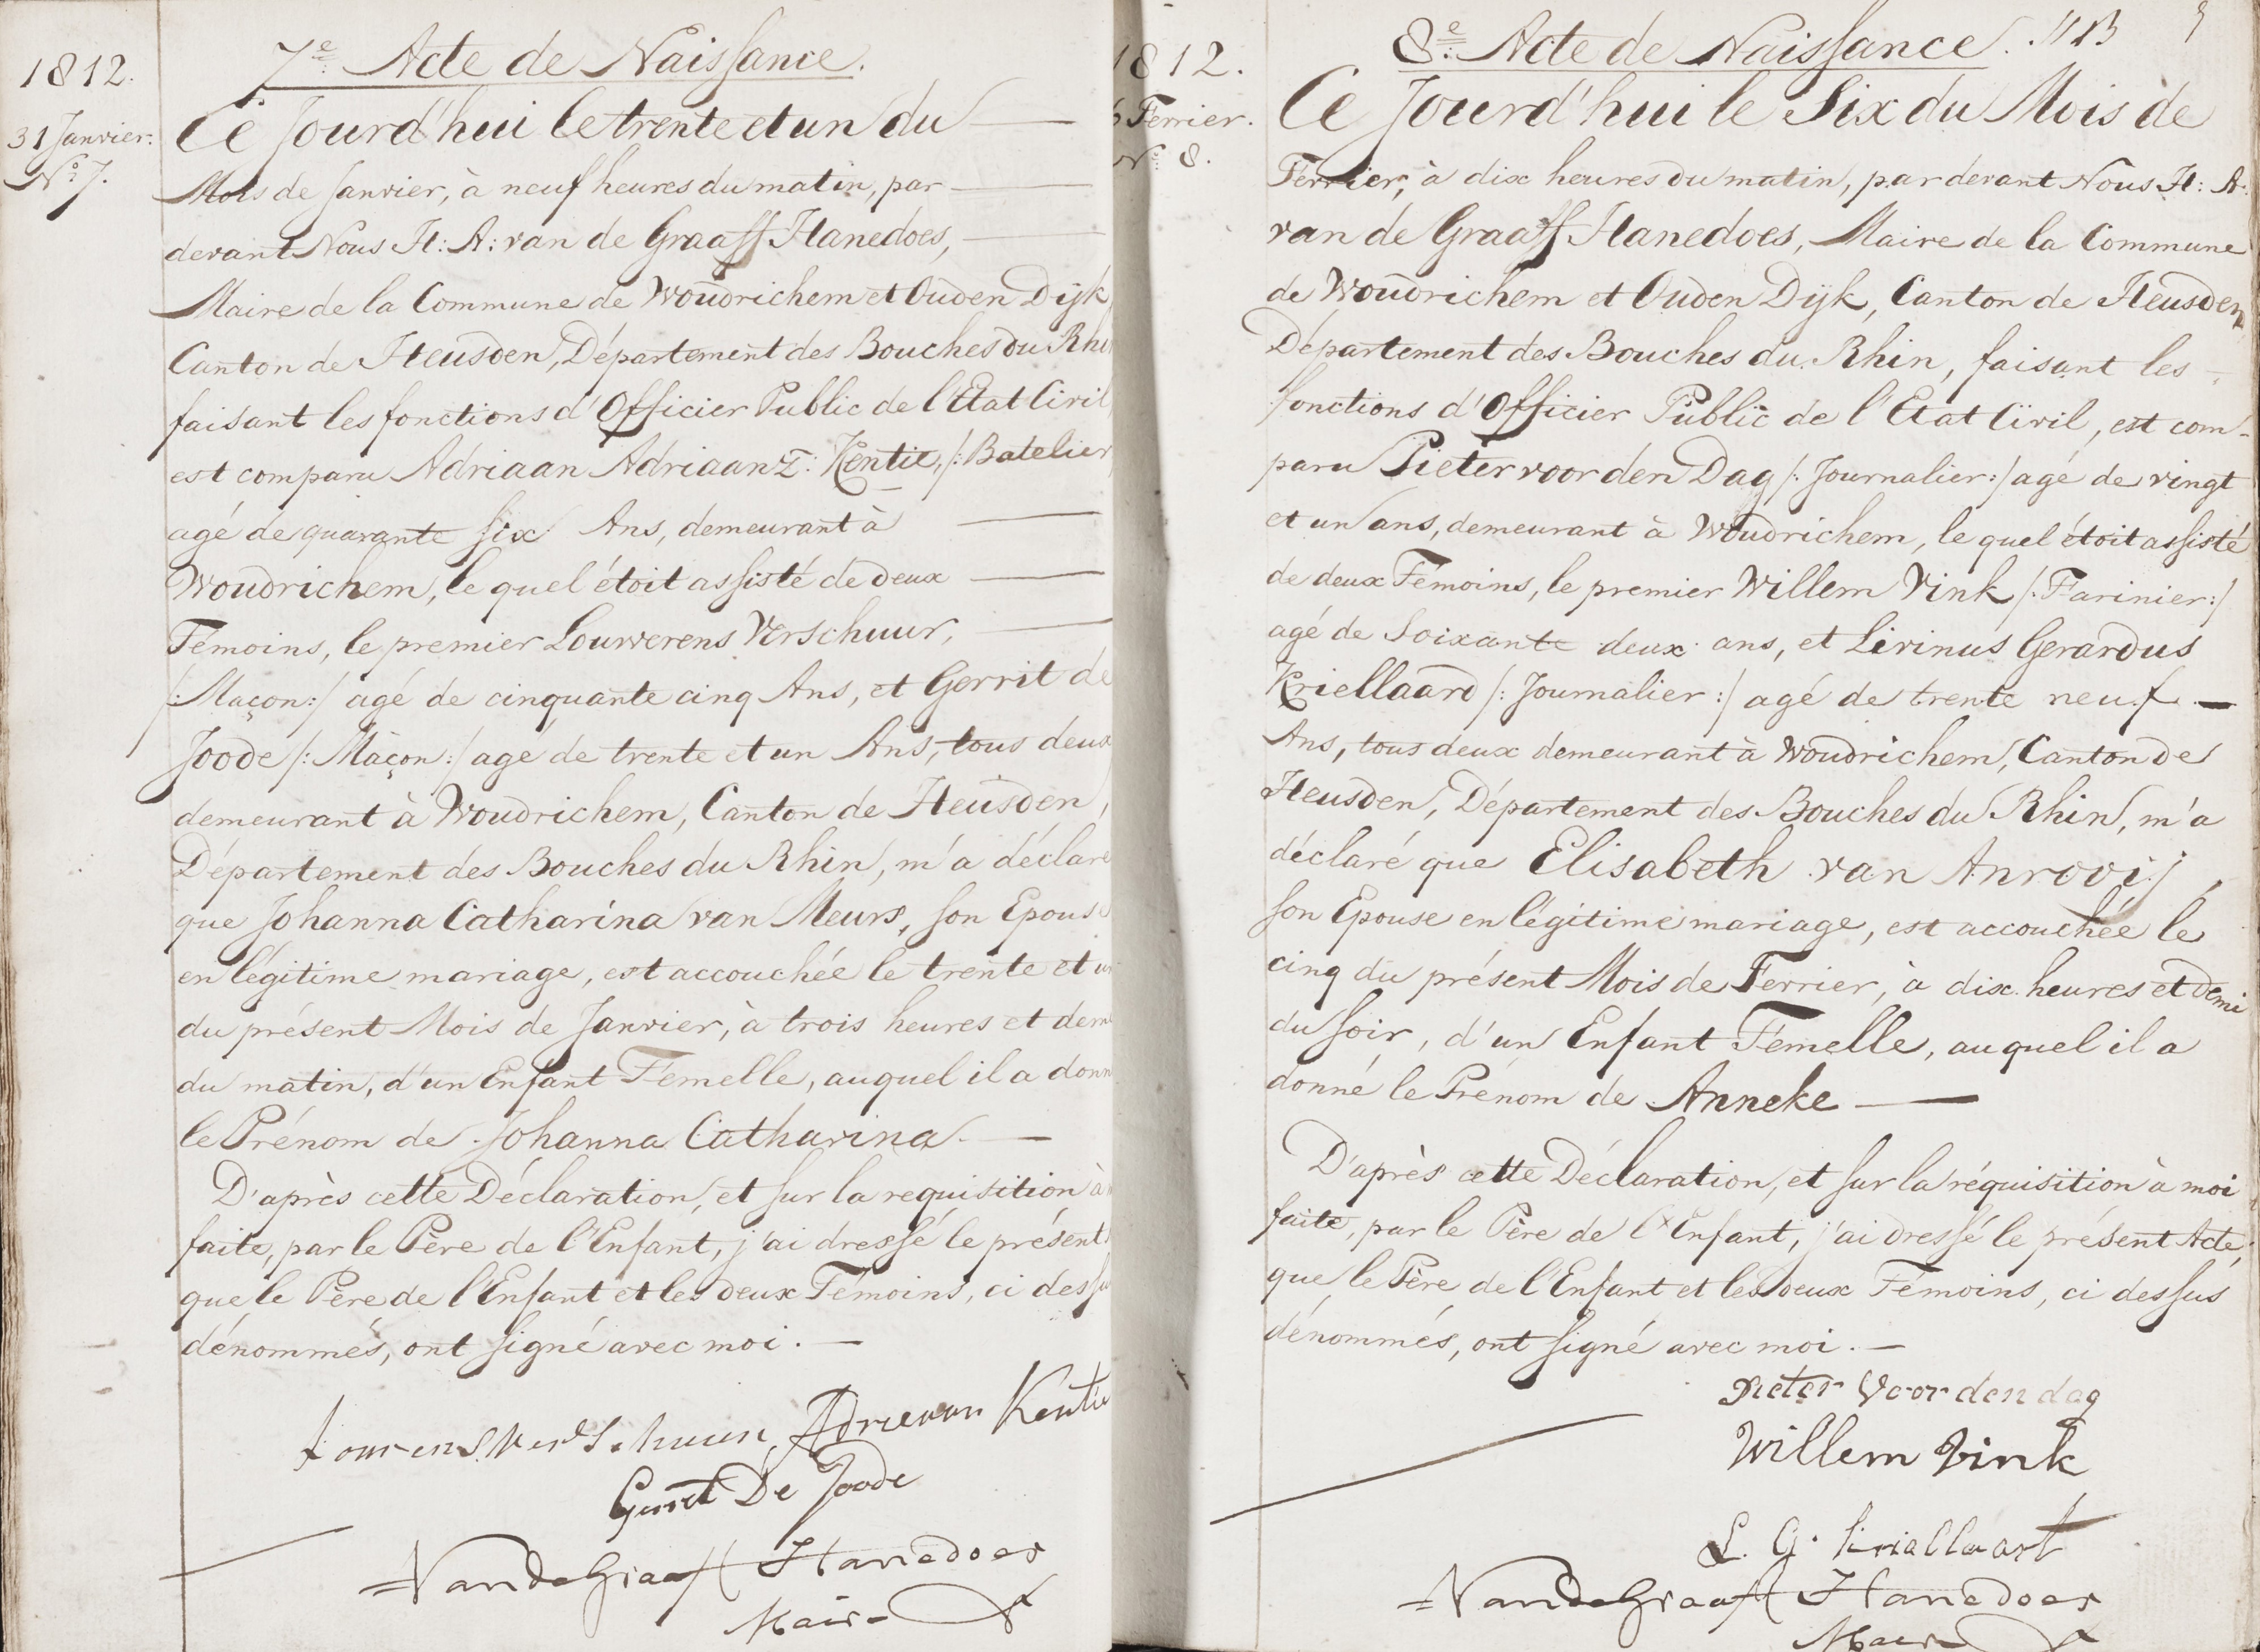 1812.
31 Janvier.
No. 7.
7e. Acte de Naissance.
Ce Jourd'hui le trente et un du
Mois de Janvier, à neuf heures du matin, par
devant Nous H: A: van de Graaff Hanedoes,
Maire de la Commune de Woudrichem et Ouden Dijk
Canton de Heusden, Département des Bouches du Rhi
faisant les fonctions d'Officier Public de l'Etat Civil,
est comparu Adriaan Adriaanz: Kentie, /: Batelier
agé de quarante six Ans, demeurant à
Woudrichem, le quel étoit assisté de deux
Témoins, le premier Louwerens Verschuur,
/: Maçon :/ agé de cinquante cinq Ans, et Gerrit de
Joode /: Maçon :/ agé de trente et un Ans, tous deux
demeurant à Woudrichem, Canton de Heusden,
Département des Bouches du Rhin, m'a déclaré
que Johanna Catharina van Meurs, son Epouse
en légitime mariage, est accouchée le trente et un
du présent Mois de Janvier, à trois heures et demi
du matin, d'un Enfant Fémelle, auquel il a donn
le Prénom de Johanna Catharina
D'après cette Déclaration, et sur la requisition à
faite, par le Père de l'Enfant, j'ai dressé le présent
que le Père de l'Enfant et les deux Témoins, ci dessu
dénommés, ont signé avec moi.
Lourens Verschuur Adrieaan Kentie
Gerret De Joode
VandeGraaff Hanedoes
Maire
1812.
6 Fevrier.
No. 8.
8e. Acte de Naissance.
Ce Jourd'hui le Six du Mois de
Fevrier, à dix heures du matin, par devant Nous H: A:
van de Graaff Hanedoes, Maire de la Commune
de Woudrichem et Ouden Dijk, Canton de Heusden,
Département des Bouches du Rhin, faisant les
fonctions d'Officier Public de l'Etat Civil, est com-
paru Pieter voor den Dag /: Journalier :/ agé de vingt
et un ans, demeurant à Woudrichem, le quel étoit assisté
de deux Témoins, le premier Willem Vink /: Farinier :/
agé de Soixante deux ans, et Livinus Gerardus
Kriellaard /: Journalier :/ agé de trente neuf
Ans, tous deux demeurant à Woudrichem, Canton de
Heusden, Département des Bouches du Rhin, m'a
déclaré que Elisabeth van Anrooij,
son Epouse en légitime mariage, est accouchée le
cinq du présent Mois de Fevrier, à dix heures et demi
du soir, d'un Enfant Fémelle, auquel il a
donné le Prénom de Anneke
D'après cette Déclaration, et sur la réquisition à moi
faite, par le Père de l'Enfant, j'ai dressé le présent Acte,
que le Père de l'Enfant et les deux Témoins, ci dessus
dénommés, ont signé avec moi.
Pieter Voor den dag
Willem Vink
L. G. Kriellaart
VandeGraaff Hanedoes
Maire